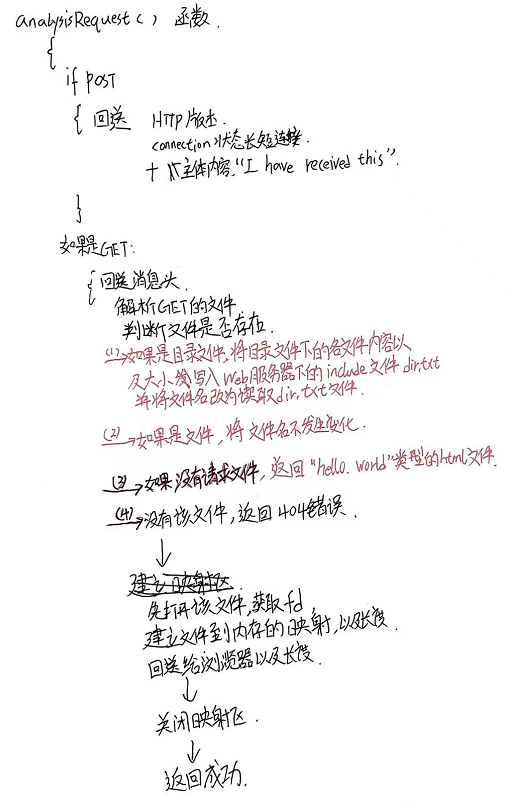 analysisRequest() 函数.
{
if POST
{ 回送 HTTP版本.
connection状态长短连接.
+ 主体内容."I have received this".
}
如果是GET:
{ 回送消息头.
解析GET的文件
判断文件是否存在.
(1)→如果是目录文件,将目录文件下的各文件内容以
及大小发写入Web服务器下的include文件dir.txt
并将文件名改为读取dir.txt文件.
(2)→如果是文件,将文件名不发生变化.
(3)→如果没有请求文件,返回"hello.world"类型的html文件.
(4)→没有该文件,返回404错误.
↓
建立映射区
先打开该文件,获取fd,
建立文件到内存的映射,以及长度.
回送给浏览器以及长度.
↓
关闭映射区.
↓
返回成功.